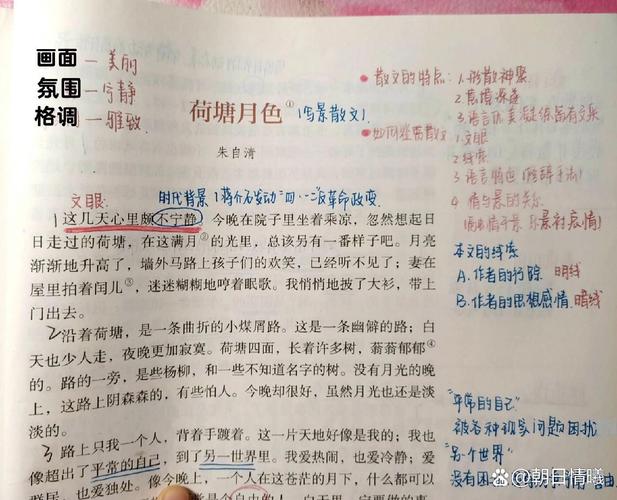 画面 — 美丽
氛围 — 宁静
格调 — 雅致
荷塘月色①(写景散文)
朱自清
散文的特点: 1.形散神聚
2.意境深邃
3.语言优美凝练富有文采
如何鉴赏散文 1.文眼
2.线索
3.语言特色(修辞手法)
4.情与景的关系
文眼:
时代背景(蒋介石发动"四·一二"反革命政变
1这几天心里颇不宁静。今晚在院子里坐着乘凉,忽然想起日
日走过的荷塘,在这满月②的光里,总该另有一番样子吧。月亮
渐渐地升高了,墙外马路上孩子们的欢笑,已经听不见了;妻在
屋里拍着闰儿③,迷迷糊糊地哼着眠歌。我悄悄地披了大衫,带上
门出去。
本文的线索
A.作者的行踪 明线
B.作者的思想感情 暗线
2沿着荷塘,是一条曲折的小煤屑路。这是一条幽僻的路;白
天也少人走,夜晚更加寂寞。荷塘四面,长着许多树,蓊蓊郁郁④
的。路的一旁,是些杨柳,和一些不知道名字的树。没有月光的晚
上,这路上阴森森的,有些怕人。今晚却很好,虽然月光也还是淡
淡的。
3路上只我一个人,背着手踱着。这一片天地好像是我的;我也
像超出了平常的自己,到了另一世界里。我爱热闹,也爱冷静;爱
群居,也爱独处。像今晚上,一个人在这苍茫的月下,什么都可以
"平常的自己"
被各种现实问题困扰
"另个世界"
没有困
@朝日情曦